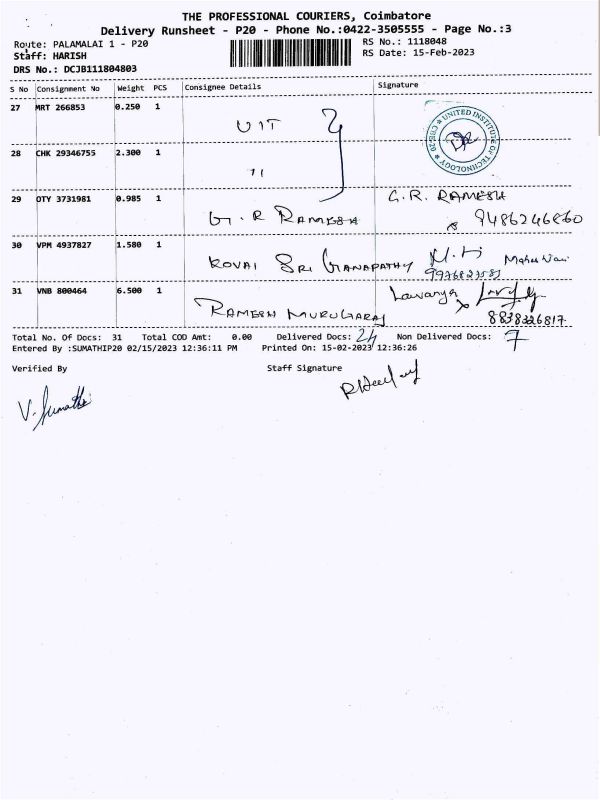 THE PROFESSIONAL COURIERS, Coimbatore
Delivery Runsheet - P20 - Phone No.:0422-3505555 - Page No.:3
Route: PALAMALAI 1 - P20
RS No.: 1118048
Staff: HARISH
RS Date: 15-Feb-2023
DRS No.: DCJB111804803
S No Consignment No Weight PCS Consignee Details Signature
27 MRT 266853 0.250 1 UIT UNITED INSTITUTE OF TECHNOLOGY
28 CHK 29346755 2.300 1 11
29 OTY 3731981 0.985 1 G. R RAMESH G. R. RAMESH
9486246860
30 VPM 4937827 1.580 1 KOVAI SRI GANAPATHY
31 VNB 800464 6.500 1 RAMESH MURUGARAJ Lavanya
8838226817
Total No. Of Docs: 31 Total COD Amt: 0.00 Delivered Docs: 24 Non Delivered Docs: 7
Entered By :SUMATHIP20 02/15/2023 12:36:11 PM Printed On: 15-02-2023 12:36:26
Verified By Staff Signature
V. Sumathi